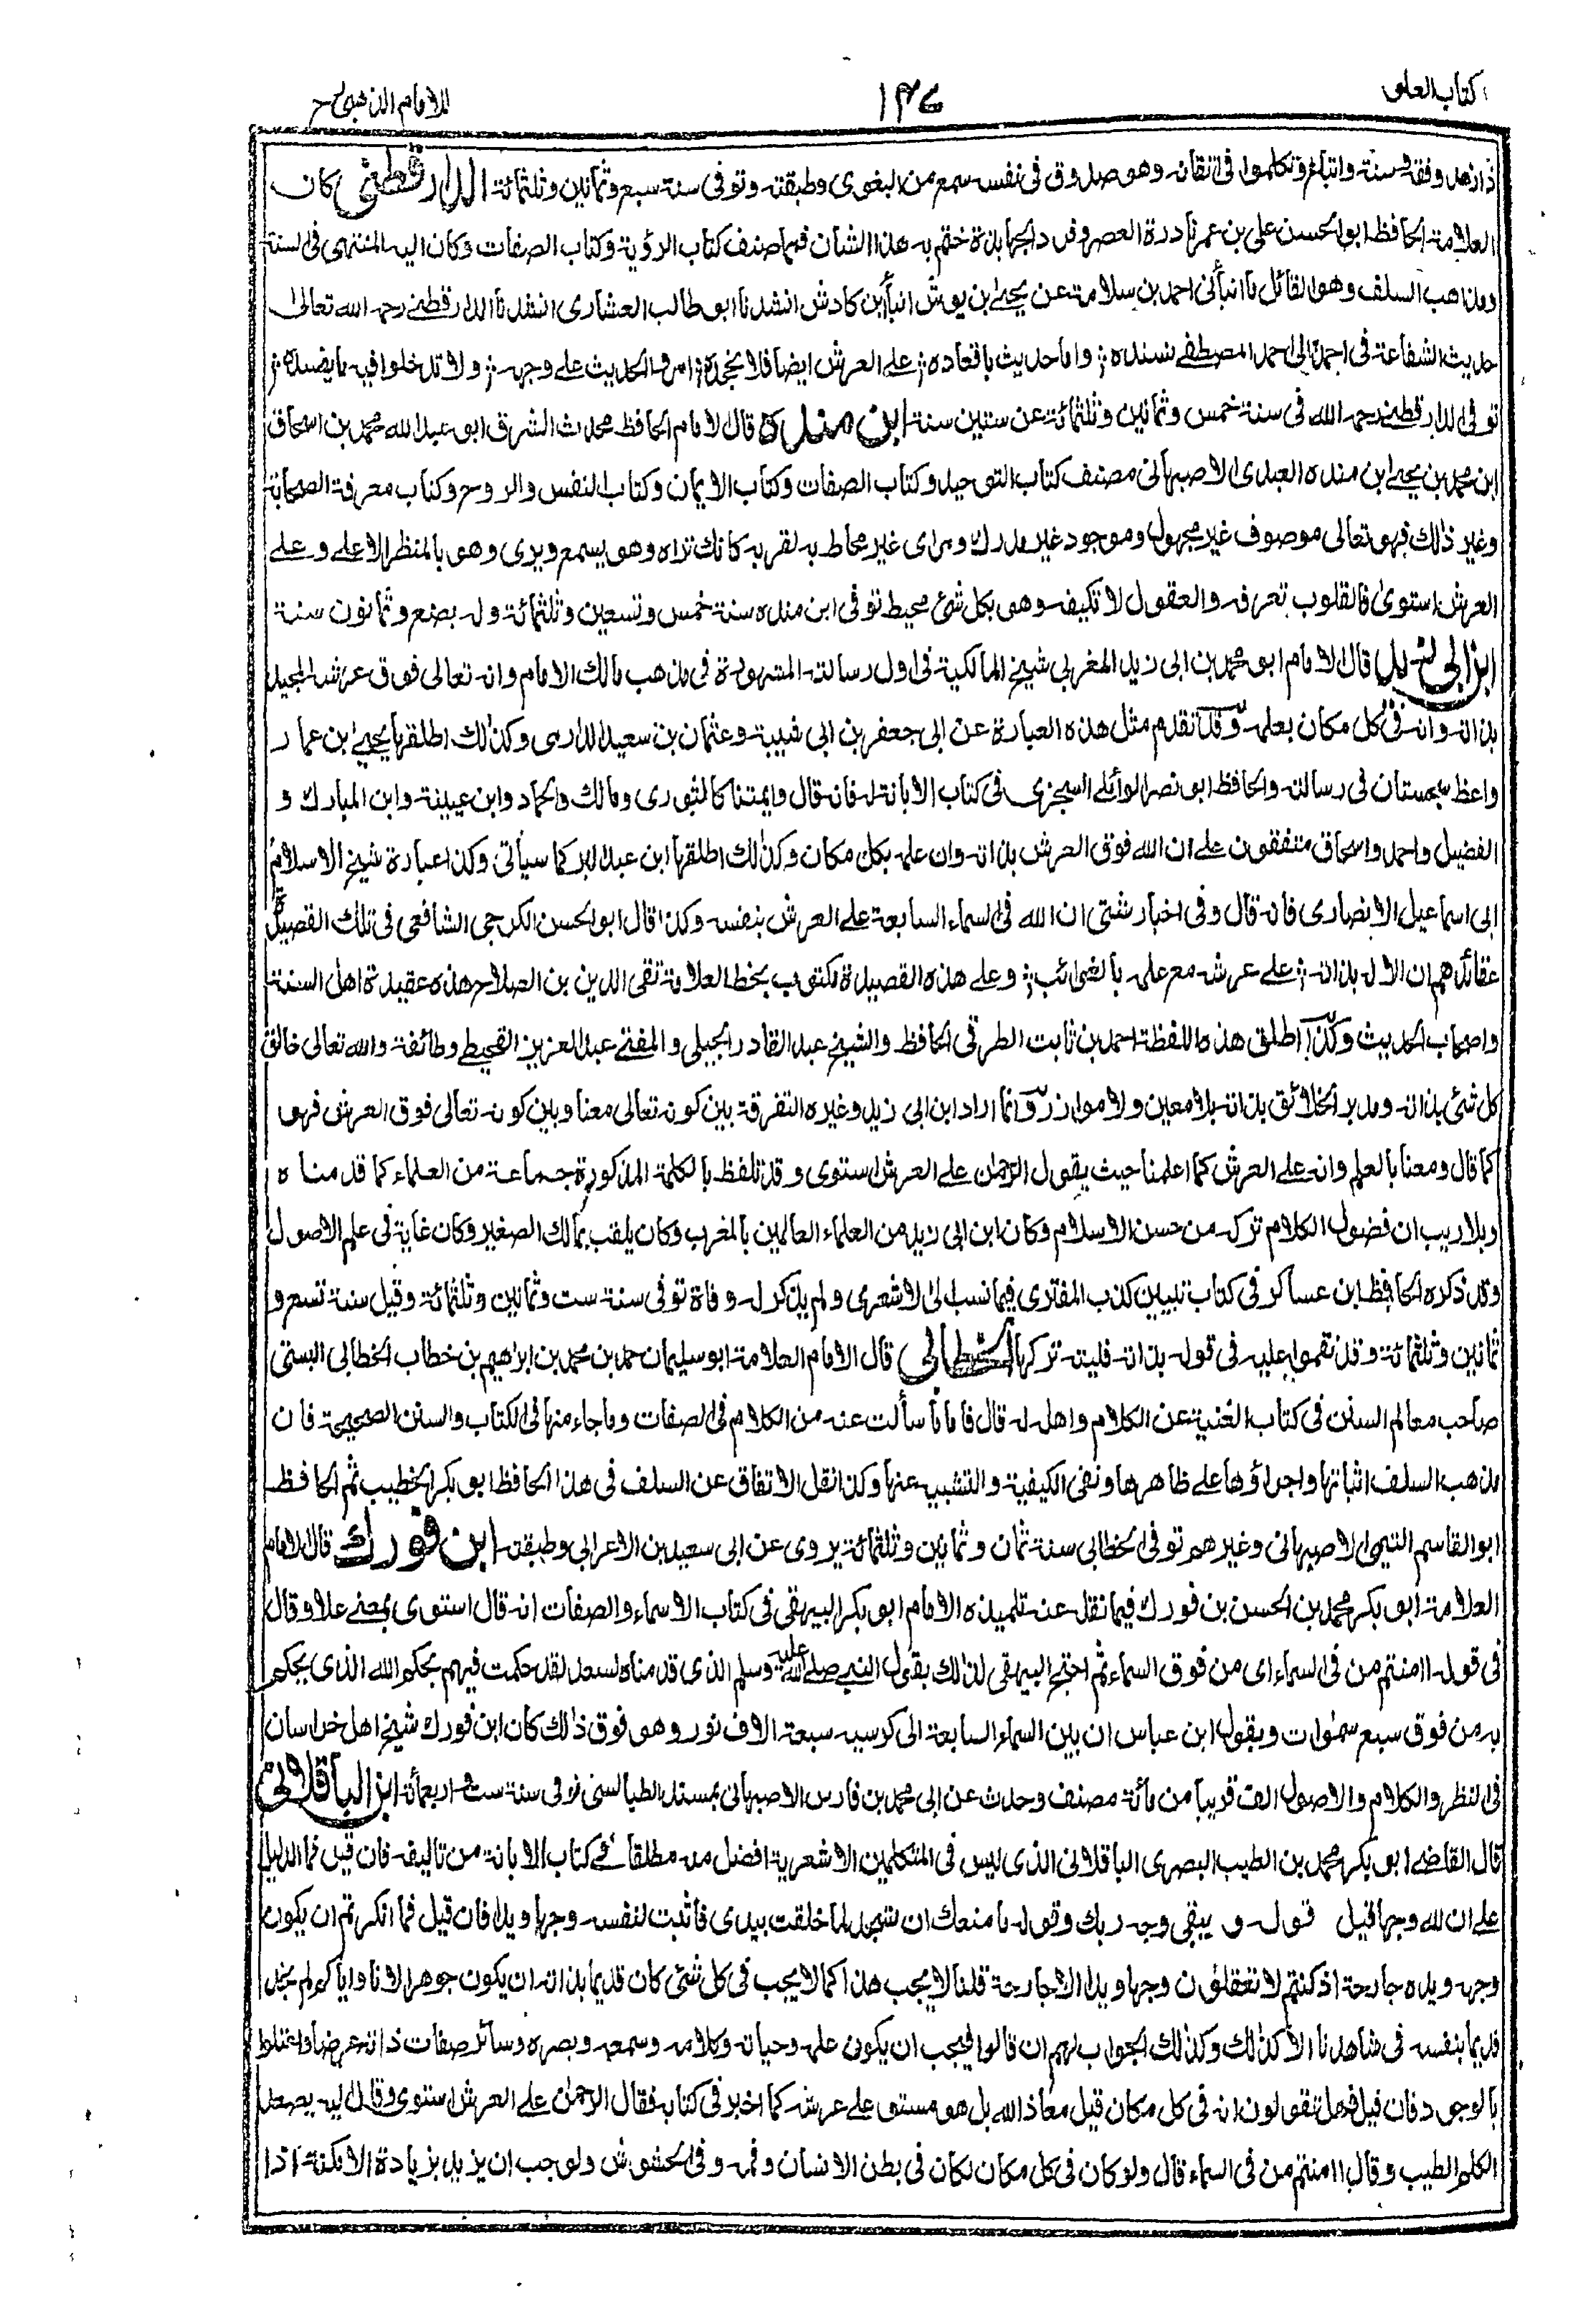 كتاب العلو
١٣٤
للامام الذهبى رح
ذا زهد وفقه وسنة واتباع وتكلموا فى اتقانه وهو صدوق فى نفسه سمع من البغوى وطبقته وتوفى سنة سبع وثمانين وثلثمائة الدارقطنى كان
العلامة الحافظ ابو الحسن على بن عمر نادرة العصر وفرد الجهابذة ختم به هذا الشان فمما صنف كتاب الرؤية وكتاب الصفات وكان اليه المنتهى فى السنة
ومذاهب السلف وهو القائل ما انبأنى احمد بن سلامة عن يحيى ابن بوش انبأ ابن كادش انشدنا ابو طالب العشارى انشدنا الدارقطنى رحمه الله تعالى
حديث الشفاعة فى احمد الى احمد المصطفى نسنده ؛ واما حديث باقعاده ؛ على العرش ايضا فلا نجحده ؛ امروا الحديث على وجهه ؛ ولا تدخلوا فيه ما يفسده ؛
توفى الدارقطنى رحمه الله فى سنة خمس وثمانين وثلثمائة عن ستين سنة ابن منده قال الامام الحافظ محدث الشرق ابو عبد الله محمد بن اسحاق
ابن محمد بن يحيى ابن منده العبدى الاصبهانى مصنف كتاب التوحيد وكتاب الصفات وكتاب الايمان وكتاب النفس والروح وكتاب معرفة الصحابة
وغير ذلك فهو تعالى موصوف غير مجهول وموجود غير مدرك ومراى غير محاط به لقربه كانك تراه وهو يسمع ويرى وهو بالمنظر الاعلى وعلى
العرش استوى فالقلوب تعرفه والعقول لا تكيفه وهو بكل شئ محيط توفى ابن منده سنة خمس وتسعين وثلثمائة وله بضع وثمانون سنة
ابن ابى زيد قال الامام ابو محمد بن ابى زيد المغربى شيخ المالكية فى اول رسالته المشهورة فى مذهب مالك الامام وانه تعالى فوق عرشه المجيد
بذاته وانه فى كل مكان بعلمه وقد تقدم مثل هذه العبارة عن ابى جعفر بن ابى شيبة وعثمان بن سعيد الدارمى وكذلك اطلقها يحيى ابن عمار
واعظ سجستان فى رسالته والحافظ ابو نصر الوائلى السجزى فى كتاب الابانة له فانه قال وايمتنا كالثورى ومالك والحماد وابن عيينة وابن المبارك و
الفضيل واحمد واسحاق متفقون على ان الله فوق العرش بذاته وان علمه بكل مكان وكذلك اطلقها ابن عبد البر كما سيأتى وكذا عبارة شيخ الاسلام
ابى اسماعيل الانصارى فانه قال وفى اخبار شتى ان الله فى السماء السابعة على العرش بنفسه وكذا قال ابو الحسن الكرجى الشافعى فى تلك القصيدة
عقائدهم ان الاله بذاته ؛ على عرشه مع علمه بالغوائب ؛ وعلى هذه القصيدة مكتوب بخط العلامة تقى الدين بن الصلاح هذه عقيدة اهل السنة
واصحاب الحديث وكذا اطلق هذه اللفظة احمد بن ثابت الطرقى الحافظ والشيخ عبد القادر الجيلى والمفتى عبد العزيز القحيطى وطائفة والله تعالى خالق
كل شئ بذاته ومدبر الخلائق بذاته بلا معين ولا موازر وانما اراد ابن ابى زيد وغيره التفرقة بين كونه تعالى معنا وبين كونه تعالى فوق العرش فهو
كما قال ومعنا بالعلم وانه على العرش كما اعلمنا حيث يقول الرحمن على العرش استوى وقد تلفظ بالكلمة المذكورة جماعة من العلماء كما قدمناه
وبلا ريب ان فضول الكلام تركه من حسن الاسلام وكان ابن ابى زيد من العلماء العالمين بالمغرب وكان يلقب بمالك الصغير وكان غاية فى علم الاصول
وقد ذكره الحافظ ابن عساكر فى كتاب تبيين كذب المفترى فيما نسب الى الاشعرى ولم يذكر له وفاة توفى سنة ست وثمانين وثلثمائة وقيل سنة تسع و
ثمانين وثلثمائة وقد نقموا عليه فى قوله بذاته فليته تركها الخطابى قال الامام العلامة ابو سليمان حمد بن محمد بن ابراهيم بن خطاب الخطابى البستى
صاحب معالم السنن فى كتاب الغنية عن الكلام واهله له قال فاما ما سألت عنه من الكلام فى الصفات وما جاء منها فى الكتاب والسنن الصحيحة فان
مذهب السلف اثباتها واجراؤها على ظاهرها ونفى الكيفية والتشبيه عنها وكذا نقل الاتفاق عن السلف فى هذا الحافظ ابو بكر الخطيب ثم الحافظ
ابو القاسم التيمى الاصبهانى وغيرهم توفى الخطابى سنة ثمان وثمانين وثلثمائة يروى عن ابى سعيد بن الاعرابى وطبقته ابن فورك قال الامام
العلامة ابو بكر محمد بن الحسن بن فورك فيما نقل عنه تلميذه الامام ابو بكر البيهقى فى كتاب الاسماء والصفات انه قال استوى بمعنى علا وقال
فى قوله اامنتم من فى السماء اى من فوق السماء ثم احتج البيهقى لذلك بقول النبى صلى الله عليه وسلم الذى قدمناه لسعد لقد حكمت فيهم بحكم الله الذى يحكم
به من فوق سبع سموات وبقول ابن عباس ان بين السماء السابعة الى كرسيه سبعة الاف نور وهو فوق ذالك كان ابن فورك شيخ اهل خراسان
فى النظر والكلام والاصول الف قريبا من مائة مصنف وحدث عن ابى محمد بن فارس الاصبهانى بمسند الطيالسى توفى سنة ست واربعمائة ابن الباقلانى
قال القاضى ابو بكر محمد بن الطيب البصرى الباقلانى الذى ليس فى المتكلمين الاشعرية افضل منه مطلقا فى كتاب الابانة من تاليفه فان قيل فما الدليل
على ان لله وجها قيل قوله و يبقى وجه ربك وقوله ما منعك ان تسجد لما خلقت بيدى فأثبت لنفسه وجها ويدا فان قيل فما انكرتم ان يكون
وجهه ويده جارحة اذ كنتم لا تعقلون وجها ويدا الا جارحة قلنا لا يجب هذا كما لا يجب فى كل شئ كان قديما بذاته ان يكون جوهرا لانا واياكم لم نجد
قديما بنفسه فى شاهدنا الا كذلك وكذلك الجواب لهم ان قالوا فيجب ان يكون علمه وحياته وكلامه وسمعه وبصره وسائر صفات ذاته عرضا واعتلوا
بالوجود فان قيل فهل تقولون انه فى كل مكان قيل معاذ الله بل هو مستو على عرشه كما اخبر فى كتابه فقال الرحمن على العرش استوى وقال اليه يصعد
الكلم الطيب وقال اامنتم من فى السماء قال ولو كان فى كل مكان لكان فى بطن الانسان وفمه وفى الحشوش ولوجب ان يزيد بزيادة الامكنة اذا